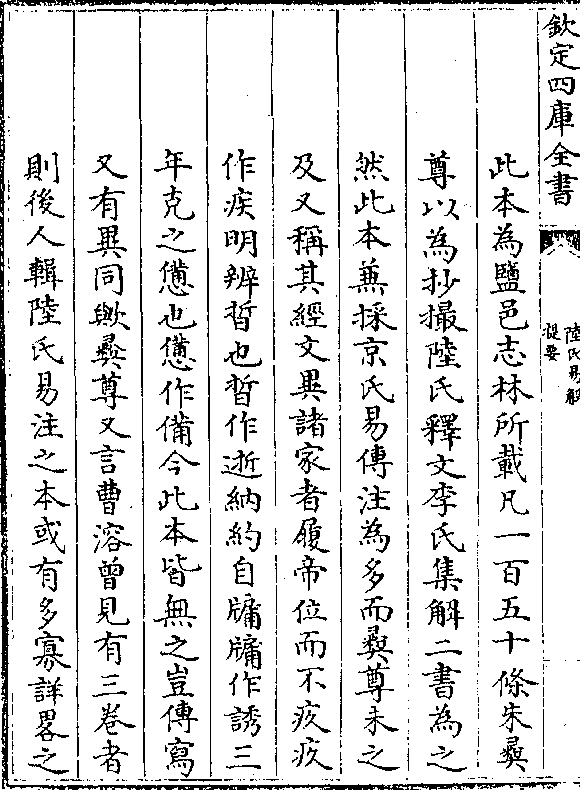 欽定四庫全書
陸氏易解
提要
此本為鹽邑志林所載凡一百五十條朱彞
尊以為抄撮陸氏釋文李氏集解二書為之
然此本兼採京氏易傳注為多而彞尊未之
及又稱其經文異諸家者履帝位而不疚疚
作疾明辨晢也晢作逝納約自牖牖作誘三
年克之憊也憊作備今此本皆無之豈傳寫
又有異同歟彞尊又言曹溶曾見有三卷者
則後人輯陸氏易注之本或有多寡詳畧之